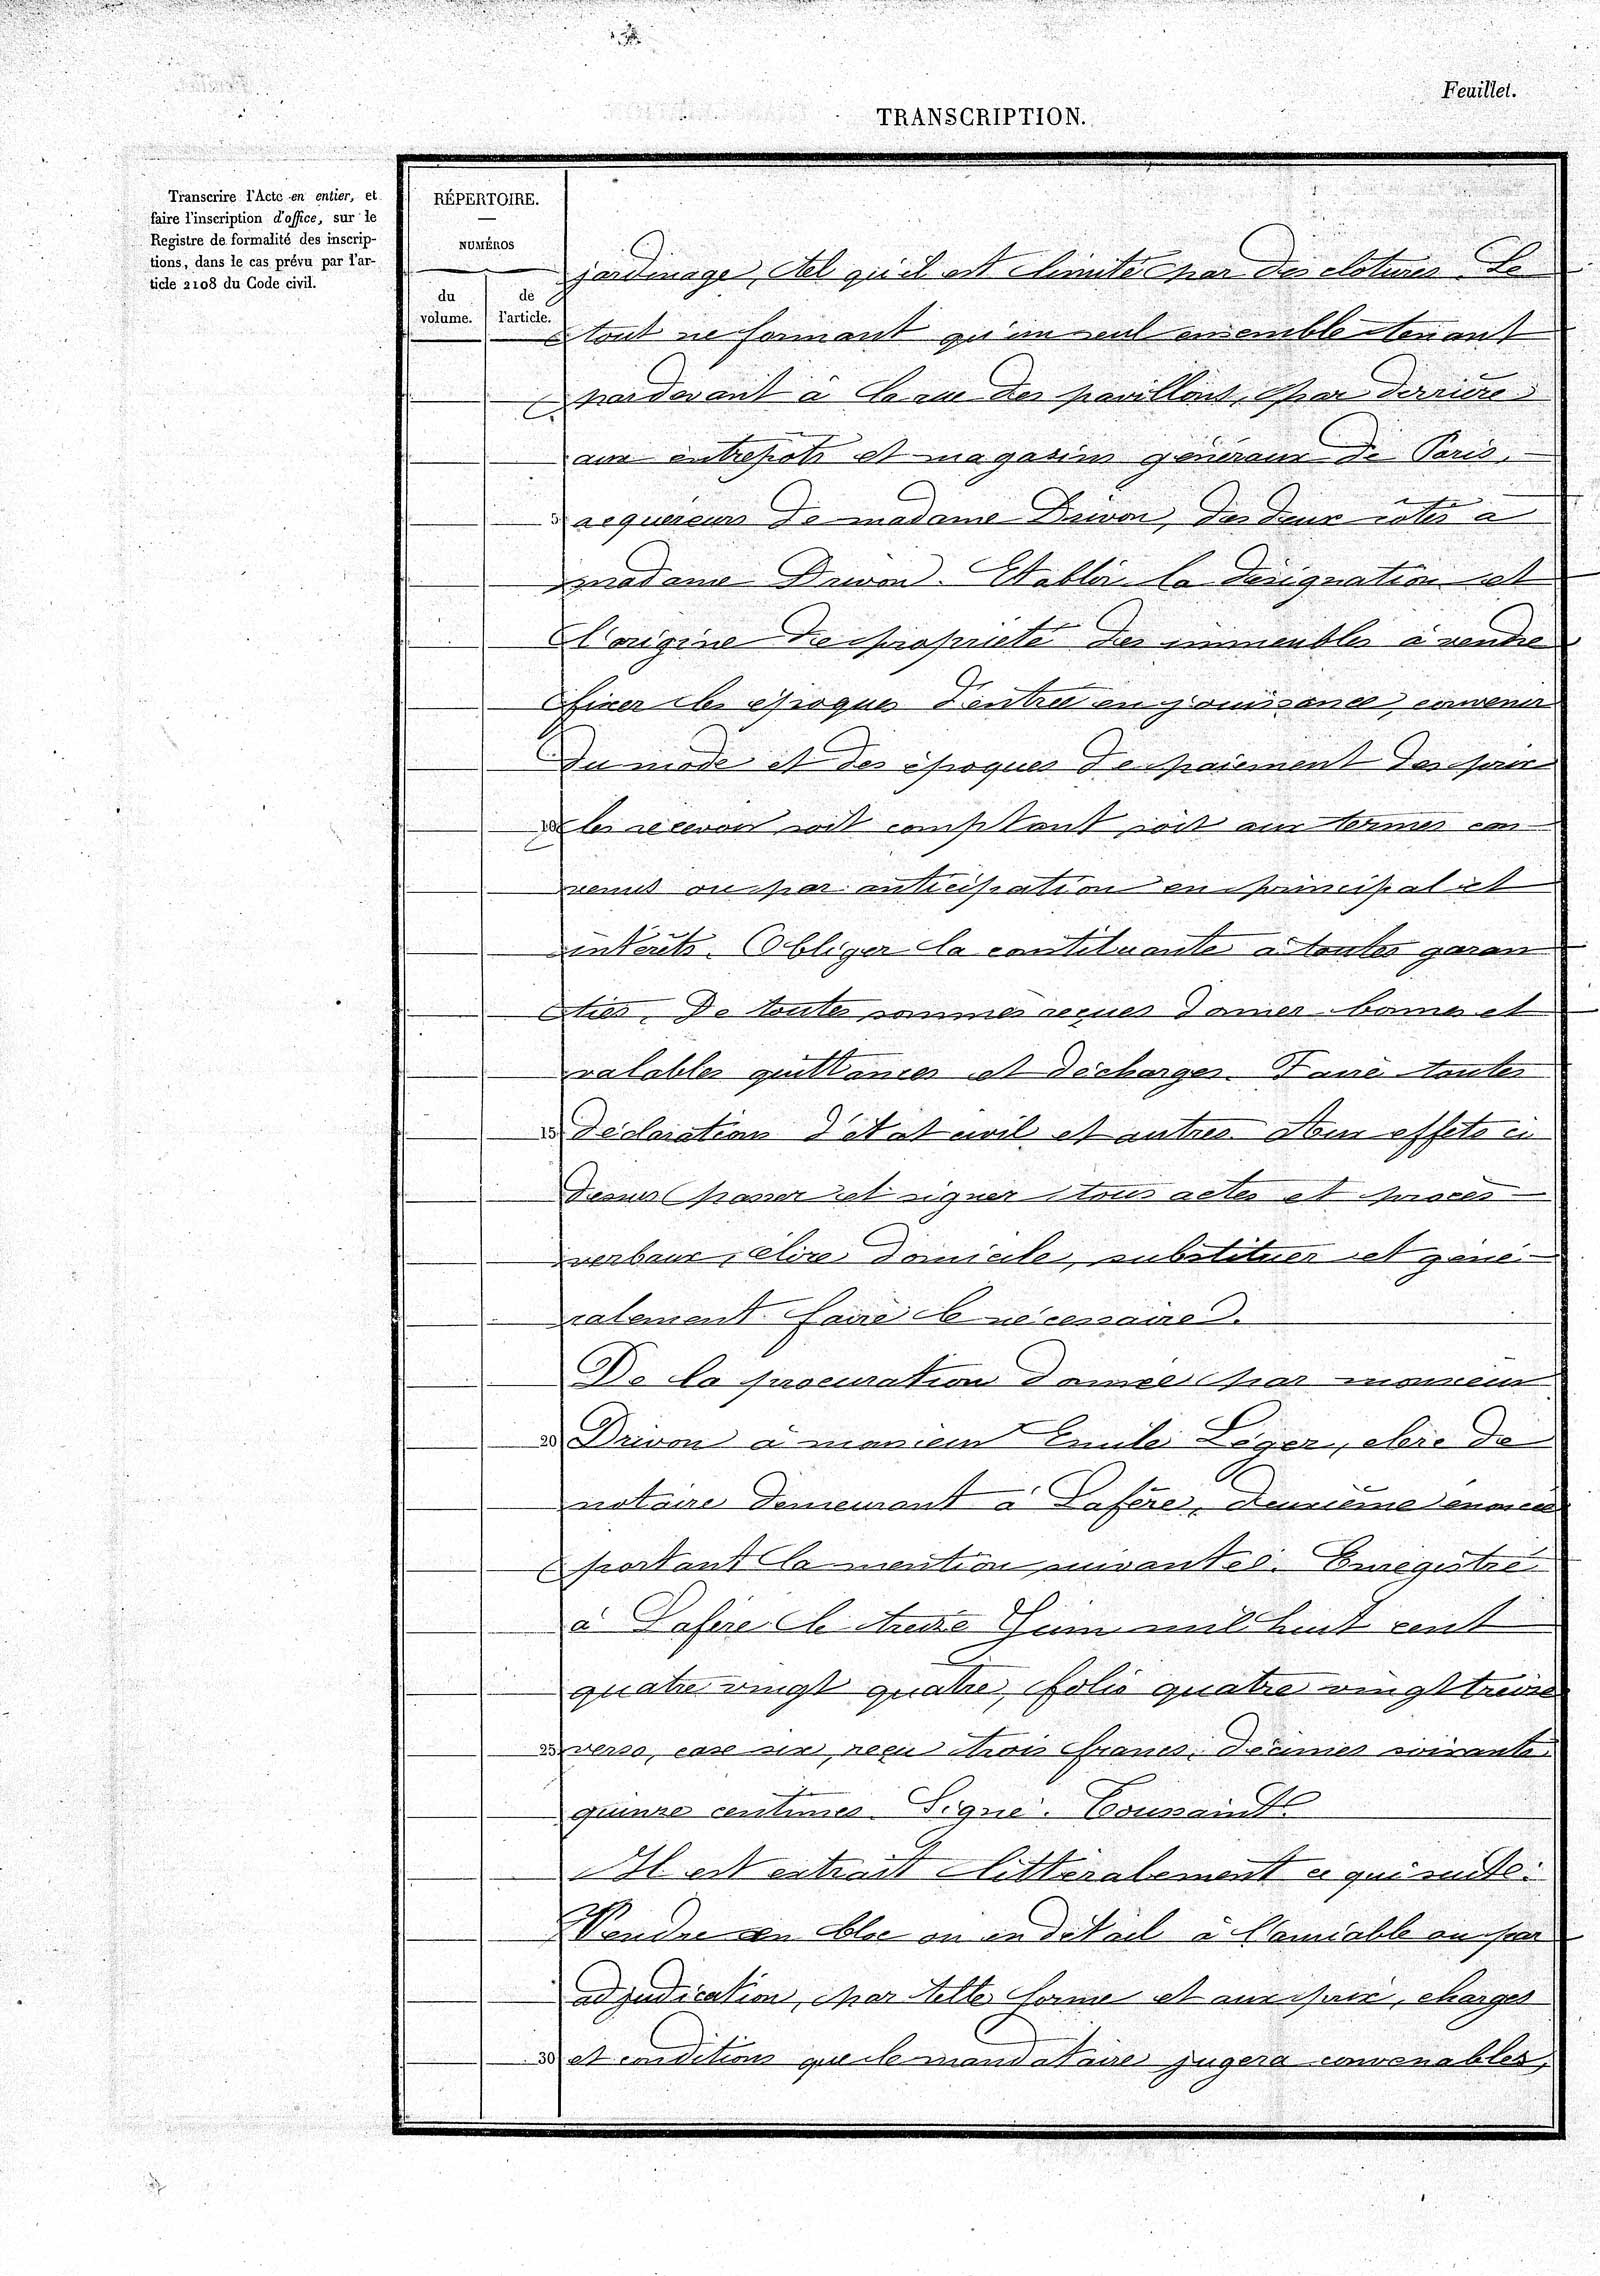 Feuillet.
TRANSCRIPTION.
Transcrire l'Acte en entier, et
faire l'inscription d'office, sur le
Registre de formalité des inscrip-
tions, dans le cas prévu par l'ar-
ticle 2108 du Code civil.
RÉPERTOIRE.
NUMÉROS
du
volume.
de
l'article.
jardinage, tel qu'il est limité par des clotures. Le
tout ne formant qu'un seul ensemble tenant
par devant à la rue des pavillons, par derrière
aux entrepots et magasins généraux de Paris,
5 acquéreurs de madame Drivon, des deux côtés à
madame Drivon. Etablir la désignation et
l'origine de propriété des immeubles à vendre
fixer les époques d'entrée en jouissance, convenir
du mode et des époques de paiement des prix
10 les recevoir soit comptant soit aux termes con
venus ou par anticipation en principal et
intérêts. Obliger la constituante à toutes garan
ties. De toutes sommes reçues donner bonnes et
valables quittances et décharges. Faire toutes
15 déclarations d'état civil et autres. Aux effets ci
dessus passer et signer tous actes et procès
verbaux, élire domicile, substituer et géné-
ralement faire le nécessaire.
De la procuration donnée par monsieur
20 Drivon à monsieur Emile Léger, clerc de
notaire demeurant à Lafère, deuxième énoncée
portant la mention suivante: Enregistré
à Lafère le treize Juin mil huit cent
quatre vingt quatre, folio quatre vingt treize
25 verso, case six, reçu trois francs, décimes soixante
quinze centimes. Signé: Toussaint
Il est extrait littéralement ce qui suit:
Vendre en bloc ou en détail à l'amiable ou par
adjudication, par telle forme et aux prix, charges
30 et conditions que le mandataire jugera convenables,